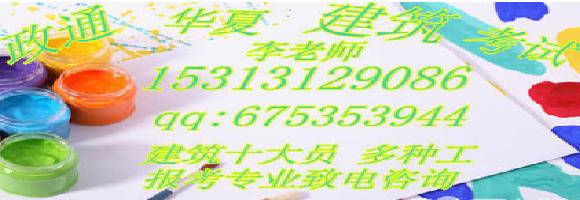 政通 华夏 建筑 考试
李老师
15313129086
qq:675353944
建筑十大员 多种工
报考专业致电咨询